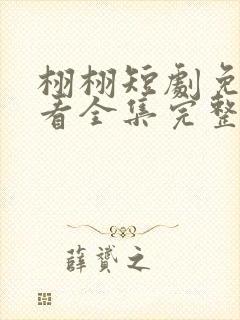 栩栩短劇免
看全集完整
薛贇之